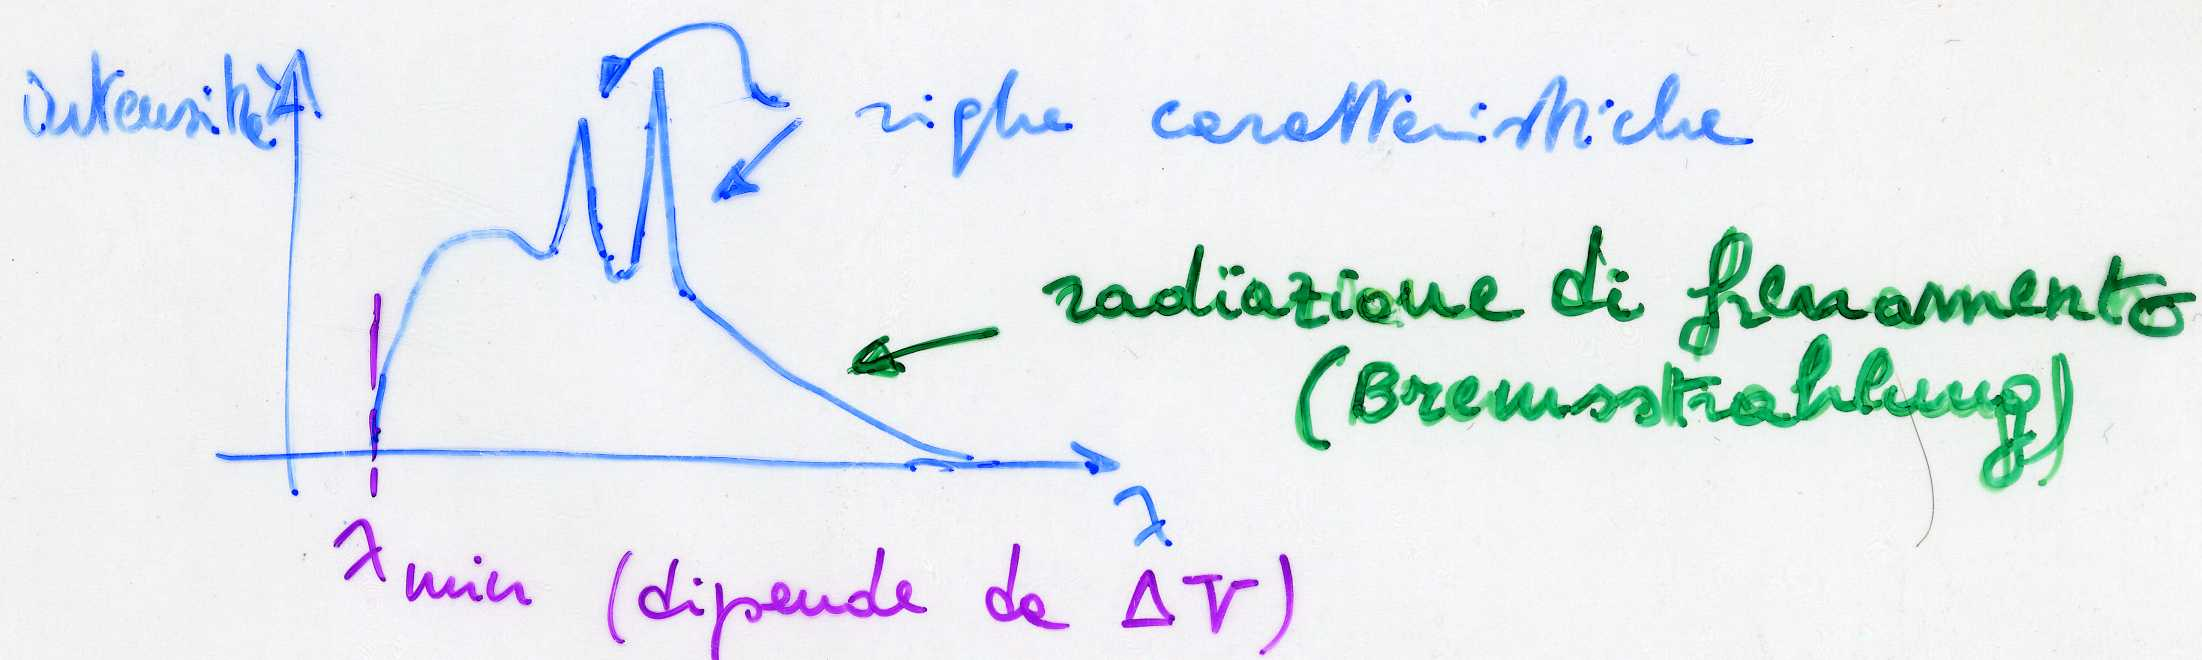 intensità
righe caratteristiche
radiazione di frenamento
(Bremsstrahlung)
λ
λmin (dipende da ΔV)